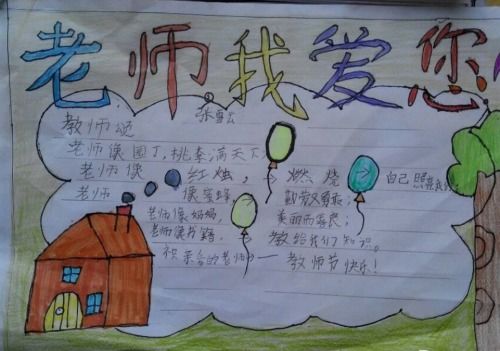 老师我爱您
教师颂
老师像园丁,桃李满天下
老师像红烛,燃烧自己照亮
老师像蜜蜂,勤劳
老师像妈妈,美丽而善良;
老师像书籍,教给我们知识。
祝亲爱的老师——教师节快乐!